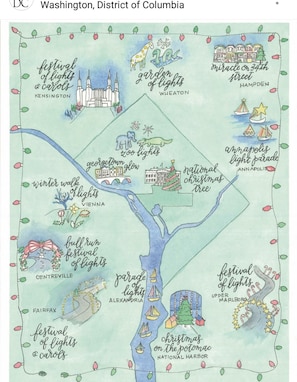 DC
Washington, District of Columbia
festival
of lights
& carols
KENSINGTON
garden
of lights
WHEATON
miracle on 34th
street
HAMPDEN
annapolis
light parade
ANNAPOLIS
zoo lights
georgetown
glow
national
christmas
tree
winter walk
of lights
VIENNA
bull run
festival
of lights
CENTREVILLE
parade
of
lights
ALEXANDRIA
festival
of lights
UPPER
MARLBORO
FAIRFAX
festival
of lights
& carols
christmas
on the potomac
NATIONAL HARBOR